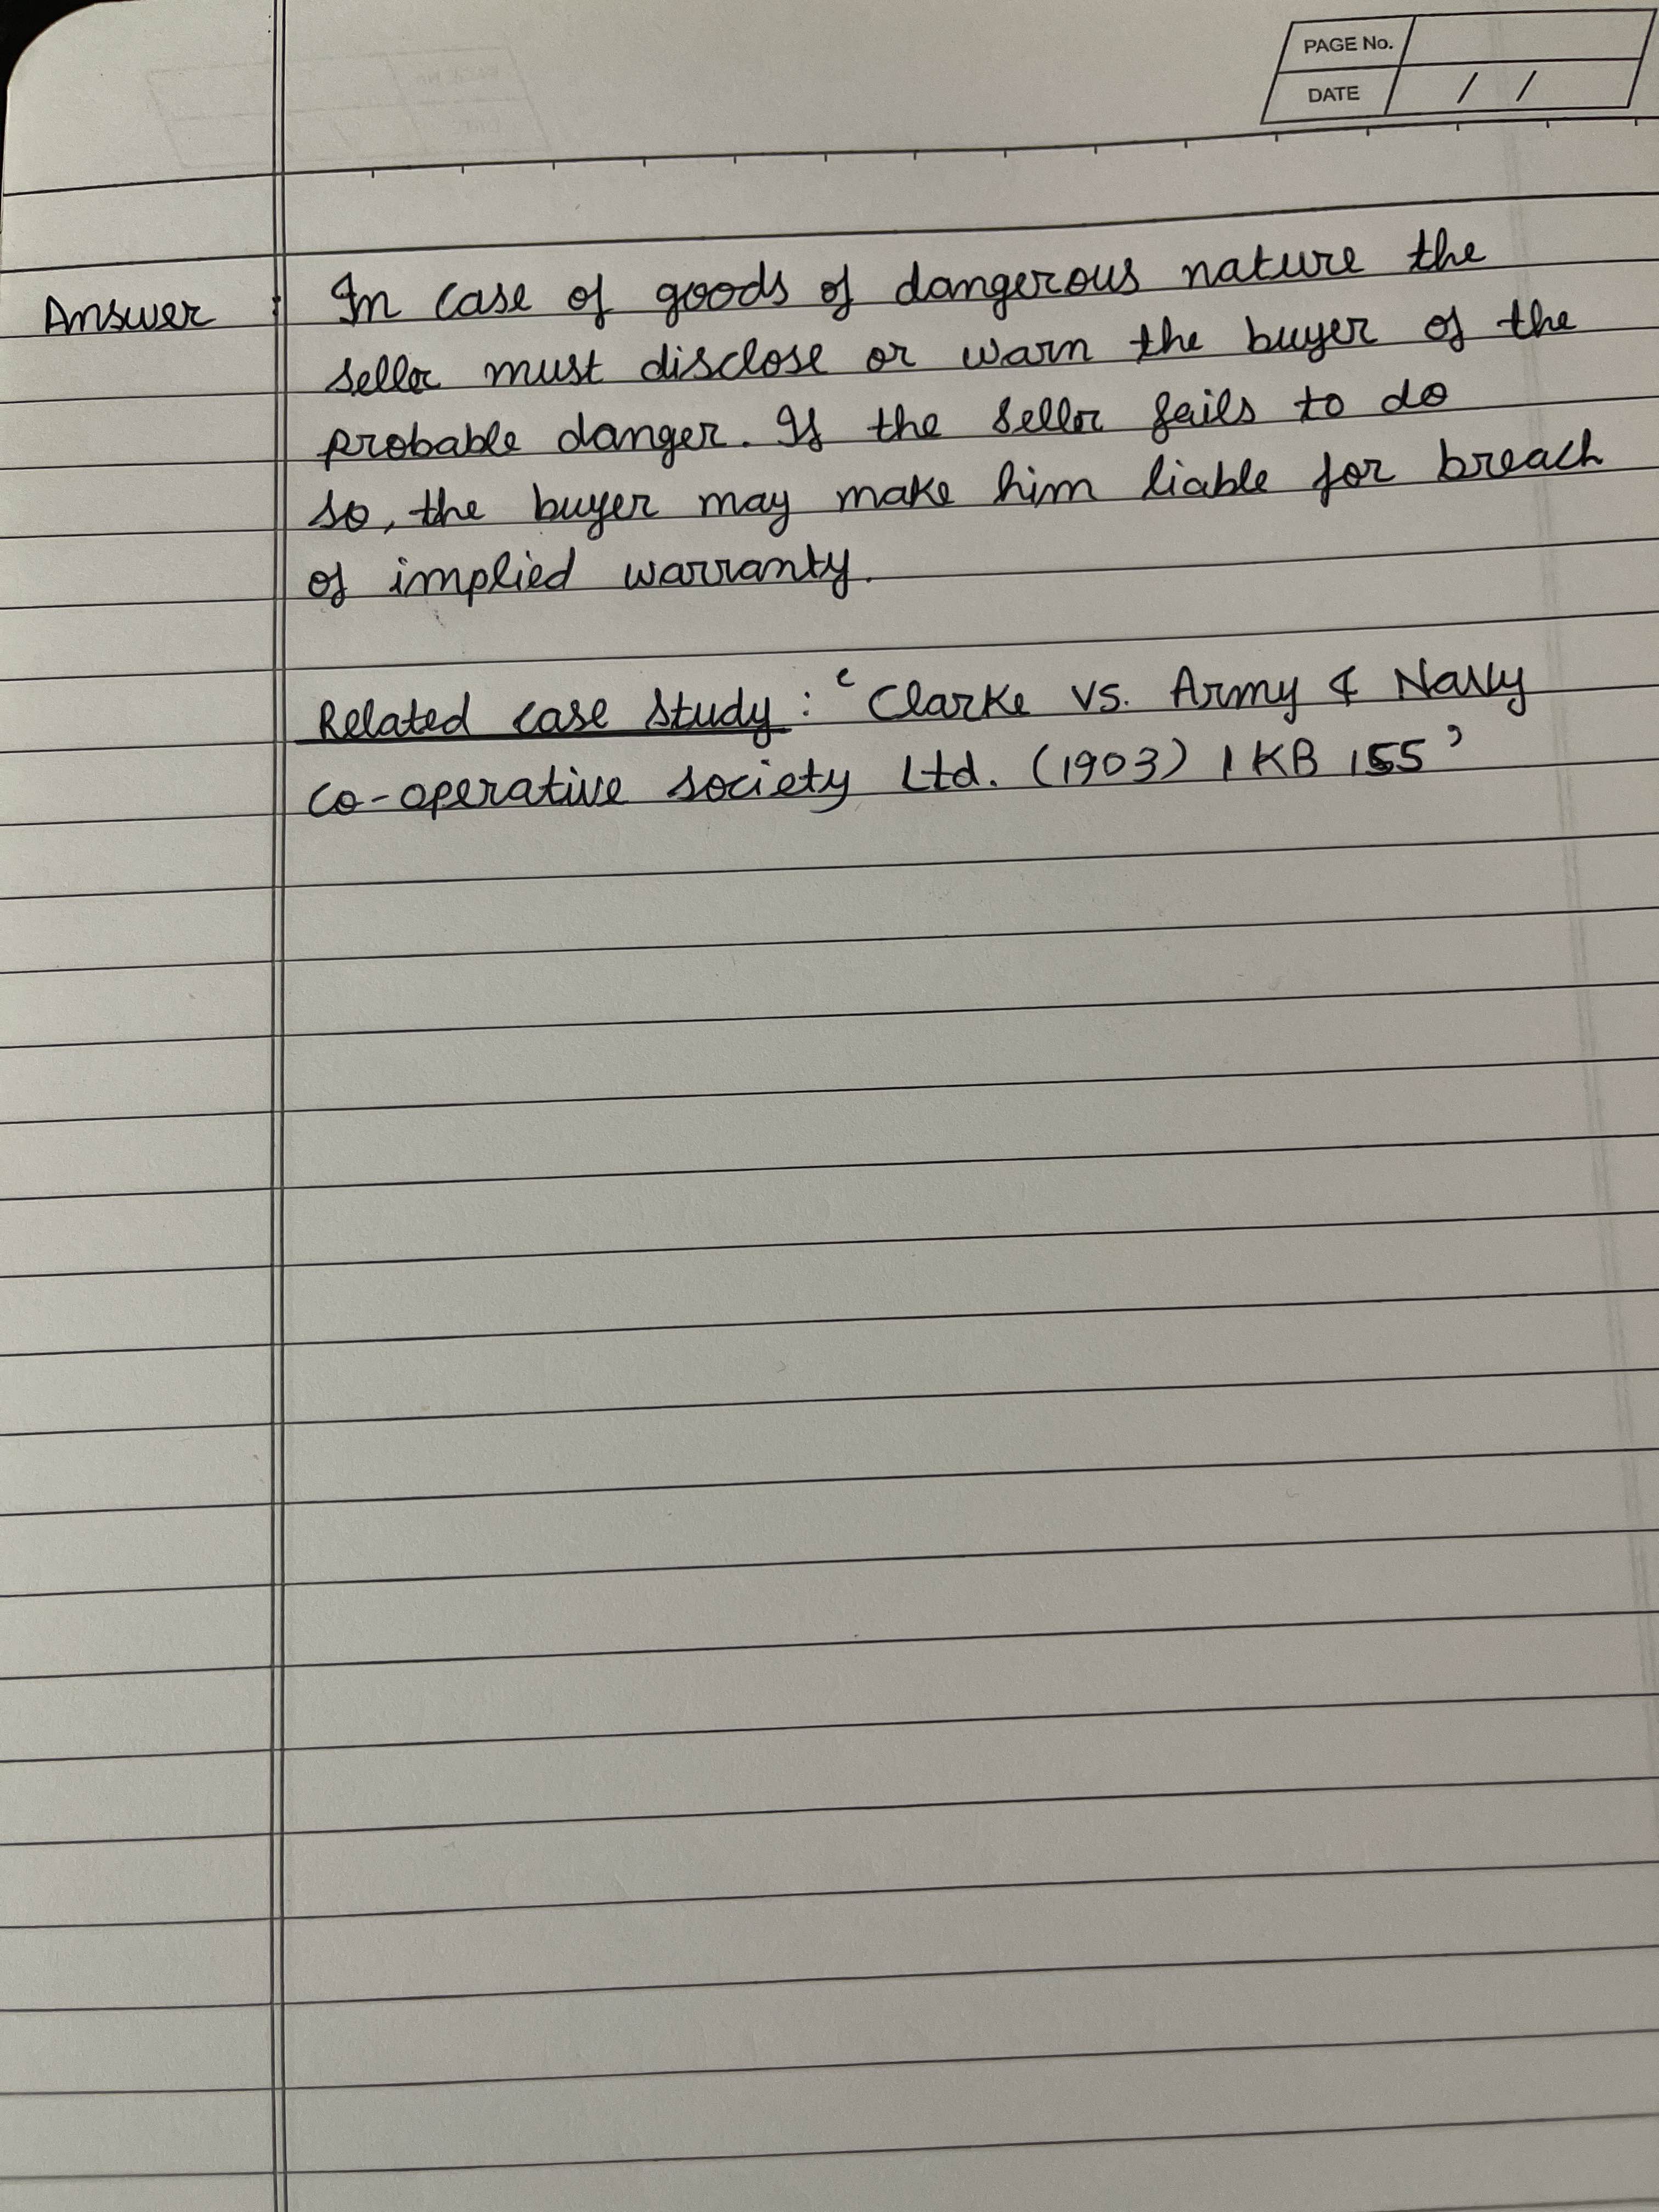 PAGE No.
DATE / /
Answer : In case of goods of dangerous nature the
seller must disclose or warn the buyer of the
probable danger. If the seller fails to do
so, the buyer may make him liable for breach
of implied warranty.
Related case study : ‘Clarke vs. Army & Navy
co-operative society Ltd. (1903) 1 KB 155’